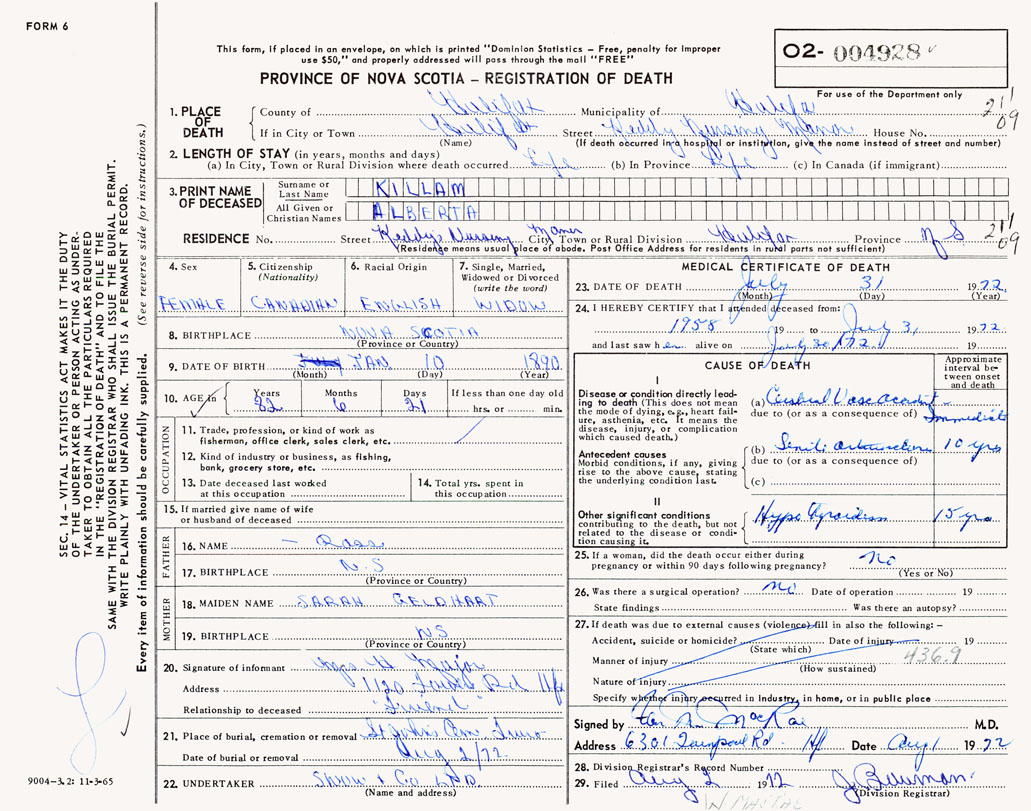 FORM 6
This form, if placed in an envelope, on which is printed "Dominion Statistics – Free, penalty for improper
use $50," and properly addressed will pass through the mail "FREE"
PROVINCE OF NOVA SCOTIA – REGISTRATION OF DEATH
O2- 004928
For use of the Department only
211
09
1. PLACE OF DEATH
County of Halifax Municipality of Halifax
If in City or Town Halifax Street Keddy Nursing Manor House No.
(Name) (If death occurred in a hospital or institution, give the name instead of street and number)
2. LENGTH OF STAY (in years, months and days)
(a) In City, Town or Rural Division where death occurred Life (b) In Province Life (c) In Canada (if immigrant)
3. PRINT NAME OF DECEASED
Surname or Last Name KILLAM
All Given or Christian Names ALBERTA
RESIDENCE No. Street Keddy's Nursing Manor City, Town or Rural Division Halifax Province N S
211
09
(Residence means usual place of abode. Post Office Address for residents in rural parts not sufficient)
4. Sex FEMALE
5. Citizenship (Nationality) CANADIAN
6. Racial Origin ENGLISH
7. Single, Married, Widowed or Divorced (write the word) WIDOW
8. BIRTHPLACE NOVA SCOTIA
(Province or Country)
9. DATE OF BIRTH JAN 10 1890
(Month) (Day) (Year)
10. AGE in Years 82 Months 6 Days 21 If less than one day old
hrs. or min.
OCCUPATION
11. Trade, profession, or kind of work as
fisherman, office clerk, sales clerk, etc.
12. Kind of industry or business, as fishing,
bank, grocery store, etc.
13. Date deceased last worked
at this occupation
14. Total yrs. spent in
this occupation
15. If married give name of wife
or husband of deceased
FATHER
16. NAME – Ross
17. BIRTHPLACE N.S
(Province or Country)
MOTHER
18. MAIDEN NAME SARAH GELDHART
19. BIRTHPLACE NS
(Province or Country)
20. Signature of informant Mrs H
Address 1120 Rd Hfx
Relationship to deceased Friend
21. Place of burial, cremation or removal St Johns Cem Truro
Date of burial or removal Aug 2/72
22. UNDERTAKER Snow & Co LTD.
(Name and address)
MEDICAL CERTIFICATE OF DEATH
23. DATE OF DEATH July 31 1972
(Month) (Day) (Year)
24. I HEREBY CERTIFY that I attended deceased from:
1958 19 to July 31 1972
and last saw her alive on July 30/72 19
CAUSE OF DEATH
Approximate interval between onset and death
I
Disease or condition directly leading to death (This does not mean the mode of dying, e.g., heart failure, asthenia, etc. It means the disease, injury, or complication which caused death.)
(a) Cerebral Vasc Accident Immediate
due to (or as a consequence of)
Antecedent causes
Morbid conditions, if any, giving rise to the above cause, stating the underlying condition last.
(b) Senile 10 yrs
due to (or as a consequence of)
(c)
II
Other significant conditions contributing to the death, but not related to the disease or condition causing it.
Hypothyroidism 15 yrs
25. If a woman, did the death occur either during
pregnancy or within 90 days following pregnancy? No
(Yes or No)
26. Was there a surgical operation? No Date of operation 19
State findings Was there an autopsy?
27. If death was due to external causes (violence) fill in also the following: –
Accident, suicide or homicide? Date of injury 19
(State which)
Manner of injury 436.9
(How sustained)
Nature of injury
Specify whether injury occurred in industry, in home, or in public place
Signed by MacRae M.D.
Address 6301 Rd. Hfx Date Aug 1 1972
28. Division Registrar's Record Number
29. Filed Aug 2 1972 J. Bauman
(Division Registrar)
SEC. 14 – VITAL STATISTICS ACT MAKES IT THE DUTY
OF THE UNDERTAKER OR PERSON ACTING AS UNDER-
TAKER TO OBTAIN ALL THE PARTICULARS REQUIRED
IN THE "REGISTRATION OF DEATH" AND TO FILE THE
SAME WITH THE DIVISION REGISTRAR WHO SHALL ISSUE THE BURIAL PERMIT.
WRITE PLAINLY WITH UNFADING INK. THIS IS A PERMANENT RECORD.
Every item of information should be carefully supplied. (See reverse side for instructions.)
9004-3.2: 11-3-65